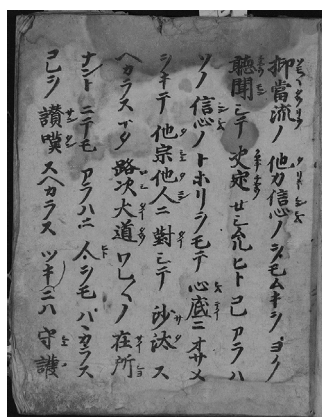 抑當流ノ他力信心ノシ𬼀モムキヲヨク
聽聞シテ決定セシムルヒトコレアラハ
ソノ信心ノトホリヲモテ心底ニオサメ
ヲキテ他宗他人ニ對シテ沙汰ス
ヘカラスマタ路次大道ワレ〳〵ノ在所
ナントニテモアラハニ人ヲモハヽカラス
コレヲ讃嘆スヘカラスツキニハ守護